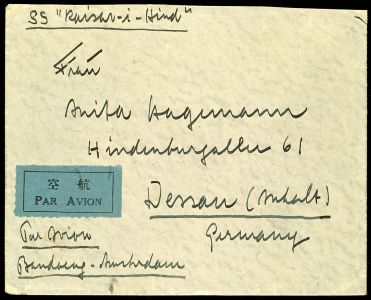 SS "Kaisar-i-Hind"
Frau
Anita Hagemann
Hindenburgallee 61
Dessau (Anhalt)
Germany
空 航
PAR AVION
Par Avion
Bandoeng-Amsterdam